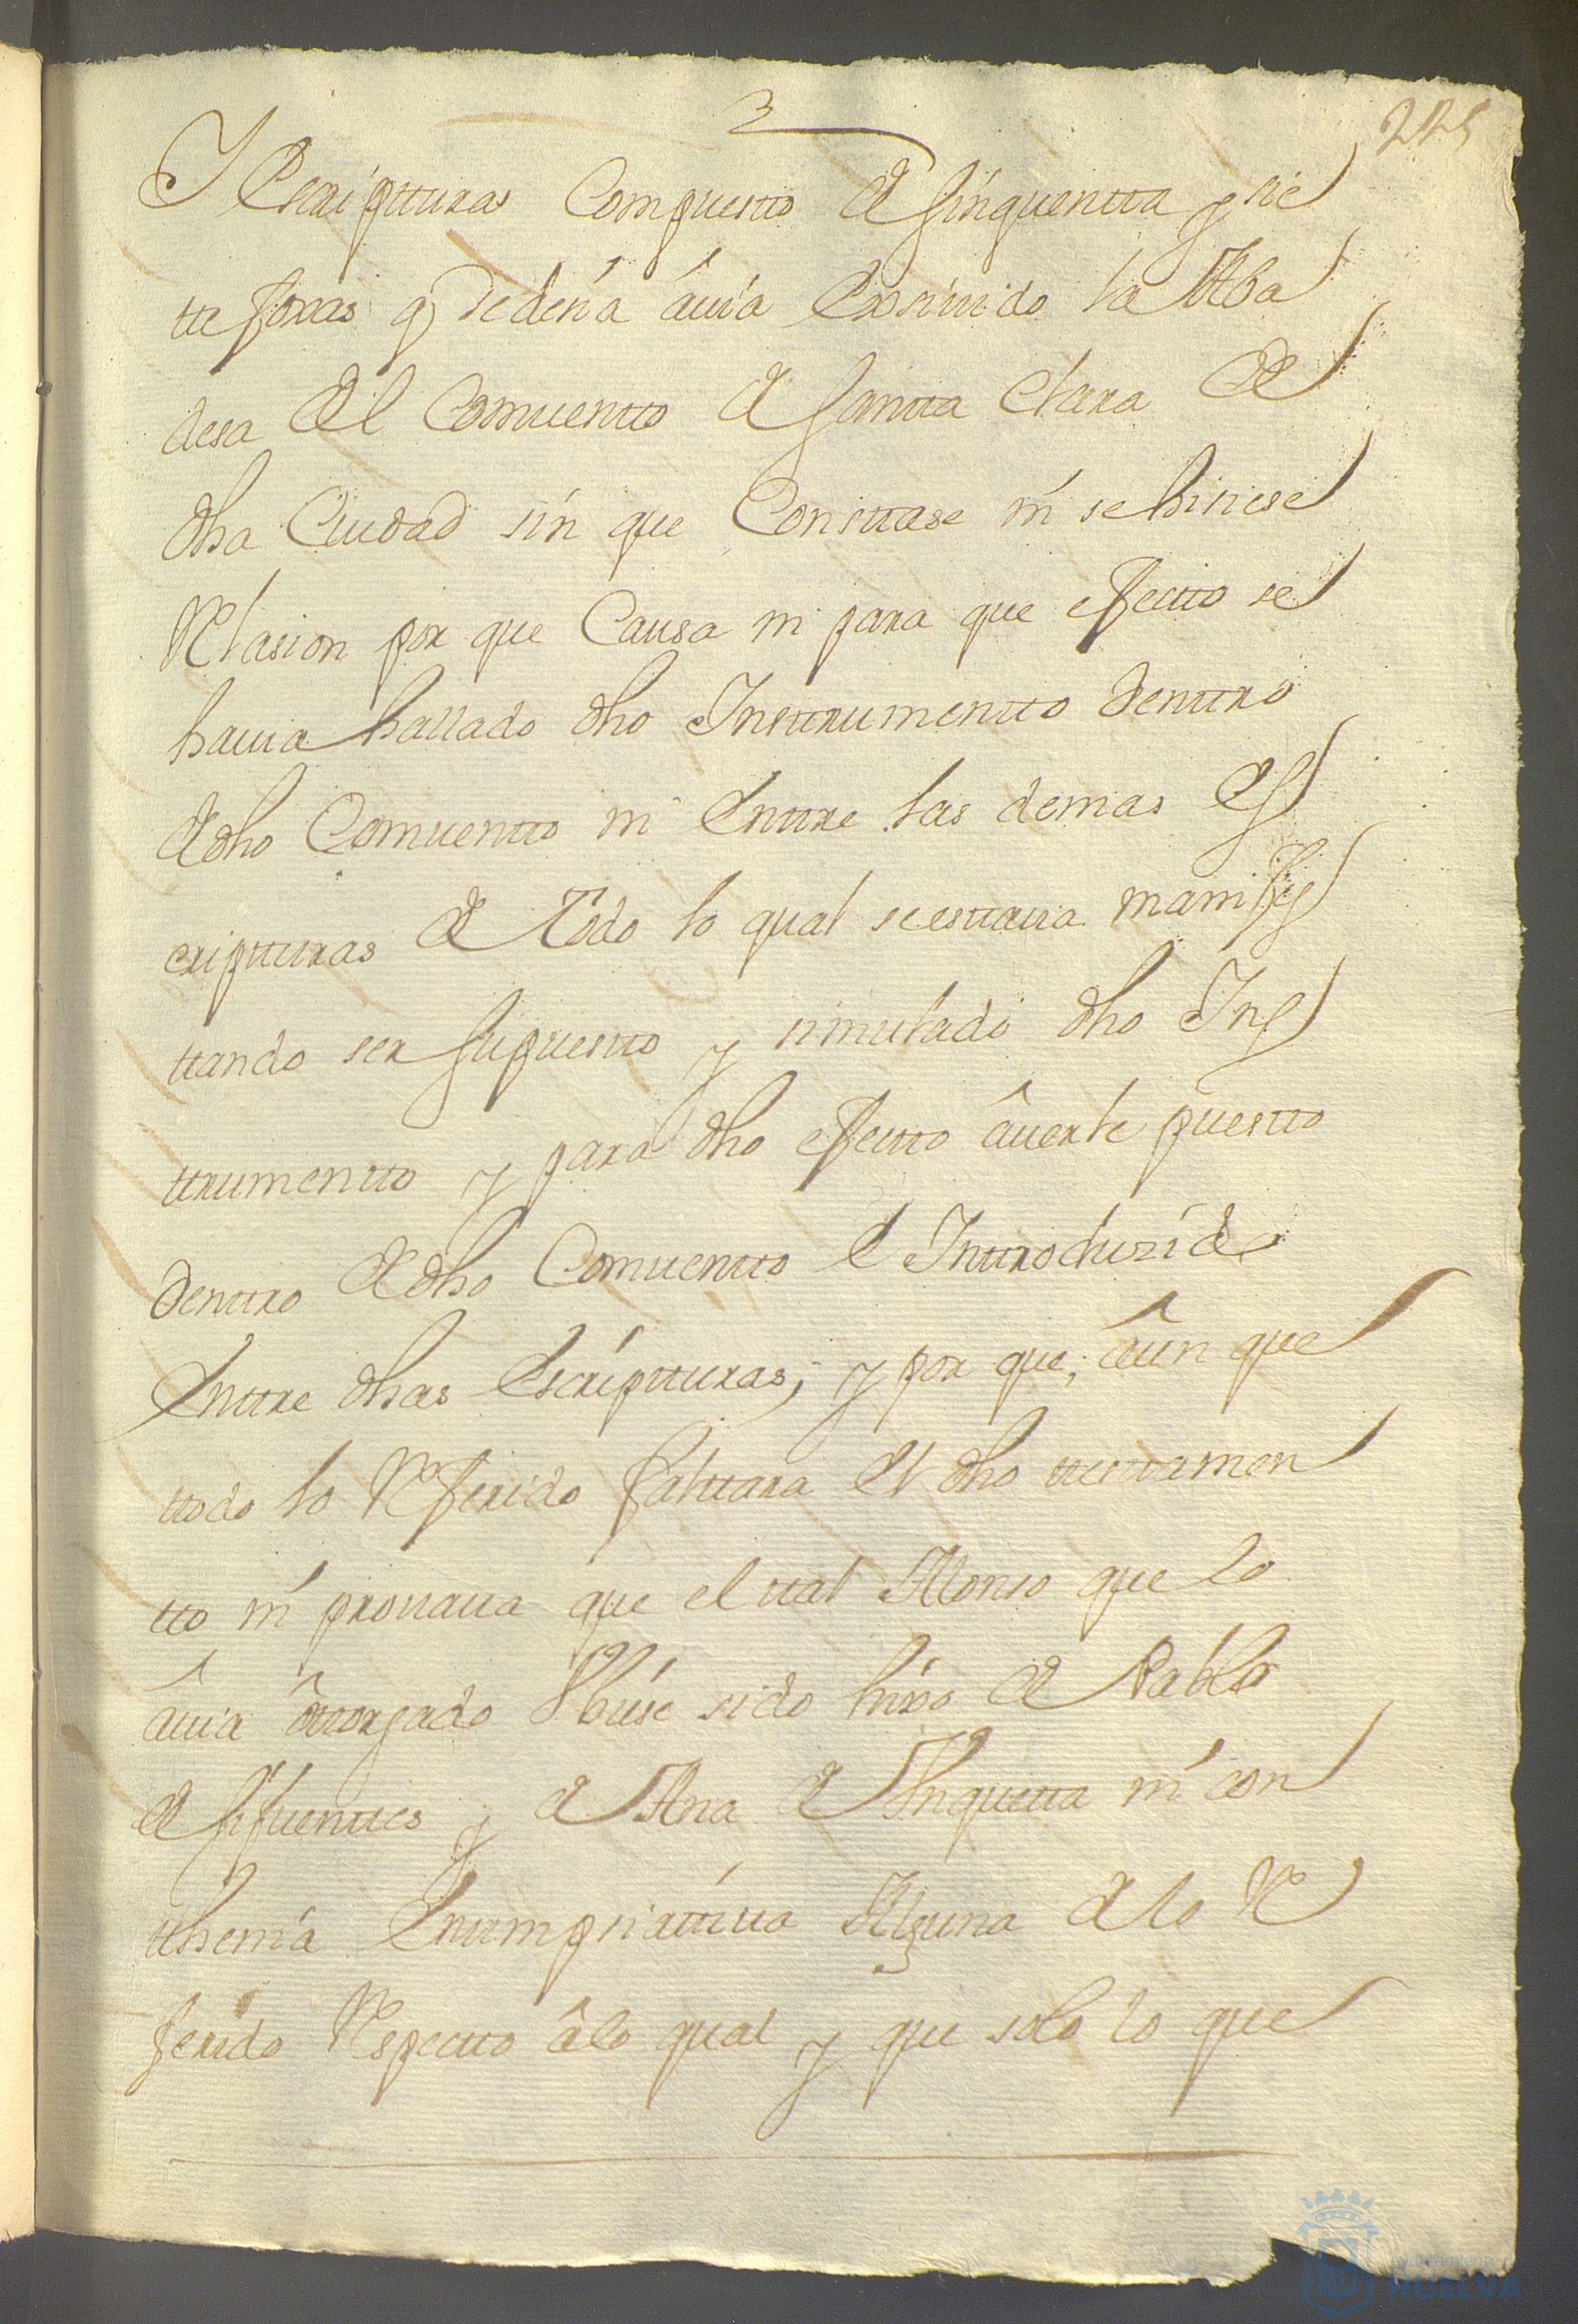 225
Y Escriptturas Compuestto de sinquentta y sie
tte foxas q dedeçia âuia Exsiuido la Aba
desa del Comuentto de Santta Clara de
dha Ciudad sin que Consttase ni se hisiese
Relasion por que Causa ni para que efectto se
hauia hallado dho Insttrumentto denttro
de dho Comuentto ni Enttre las demas Es
criptturas de ttodo lo qual se esttaua manifes
ttando ser supuestto y simulado dho Ins
ttrumentto y para dho efectto âuerle puestto
denttro de dho Comuentto e Inttroduzido
Enttre dhas Escriptturas; y por que, âun que
ttodo lo Referido falttara el dho ttesttamen
tto ni prouaua que el ttal Alonso que lo
âuia ôttorgado Vbiese sido hixo de Pablo
de sifuenttes y de Ana de Inquetta ni con
tthenia Enumpsiattiua Alguna de lo Re
ferido Respectto âlo qual y que solo lo que
Ayuntamiento
HUELVA